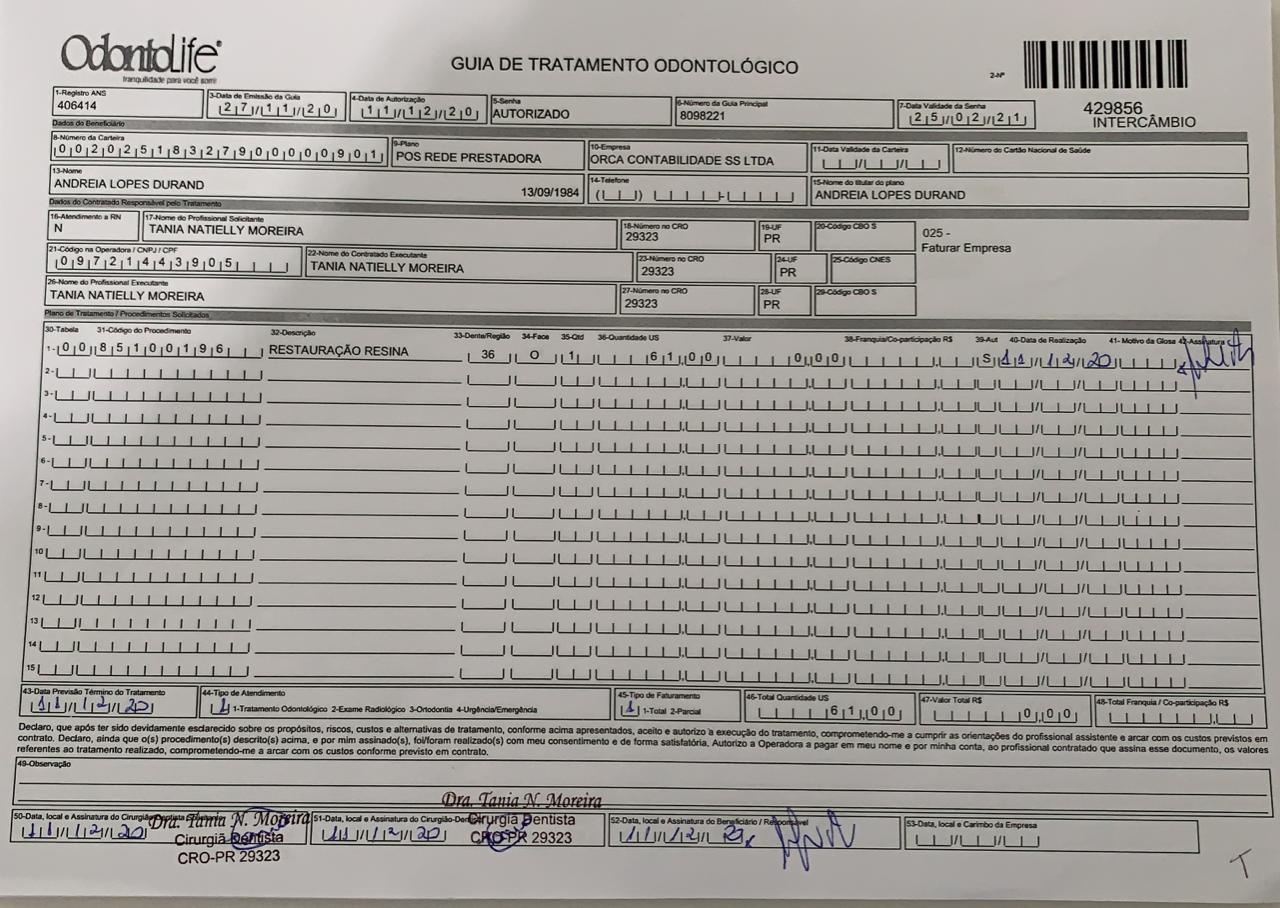 OdontoLife®
tranquilidade para você sorrir
GUIA DE TRATAMENTO ODONTOLÓGICO
2-Nº
429856
INTERCÂMBIO
1-Registro ANS
406414
3-Data de Emissão da Guia
27/11/20
4-Data de Autorização
11/12/20
5-Senha
AUTORIZADO
6-Número da Guia Principal
8098221
7-Data Validade da Senha
25/02/21
Dados do Beneficiário
8-Número da Carteira
00202518327900000901
9-Plano
POS REDE PRESTADORA
10-Empresa
ORCA CONTABILIDADE SS LTDA
11-Data Validade da Carteira
12-Número do Cartão Nacional de Saúde
13-Nome
ANDREIA LOPES DURAND 13/09/1984
14-Telefone
15-Nome do titular do plano
ANDREIA LOPES DURAND
Dados do Contratado Responsável pelo Tratamento
16-Atendimento a RN
N
17-Nome do Profissional Solicitante
TANIA NATIELLY MOREIRA
18-Número no CRO
29323
19-UF
PR
20-Código CBO S
025 -
Faturar Empresa
21-Código na Operadora / CNPJ / CPF
09721443905
22-Nome do Contratado Executante
TANIA NATIELLY MOREIRA
23-Número no CRO
29323
24-UF
PR
25-Código CNES
26-Nome do Profissional Executante
TANIA NATIELLY MOREIRA
27-Número no CRO
29323
28-UF
PR
29-Código CBO S
Plano de Tratamento / Procedimentos Solicitados
30-Tabela 31-Código do Procedimento 32-Descrição 33-Dente/Região 34-Face 35-Qtd 36-Quantidade US 37-Valor 38-Franquia/Co-participação R$ 39-Aut 40-Data de Realização 41- Motivo da Glosa 42-Assinatura
1- 00 85100196 RESTAURAÇÃO RESINA 36 O 1 61,00 0,00 S 11/12/20
2-
3-
4-
5-
6-
7-
8-
9-
10
11
12
13
14
15
43-Data Previsão Término do Tratamento
11/12/20
44-Tipo de Atendimento
1 1-Tratamento Odontológico 2-Exame Radiológico 3-Ortodontia 4-Urgência/Emergência
45-Tipo de Faturamento
1 1-Total 2-Parcial
46-Total Quantidade US
61,00
47-Valor Total R$
0,00
48-Total Franquia / Co-participação R$
Declaro, que após ter sido devidamente esclarecido sobre os propósitos, riscos, custos e alternativas de tratamento, conforme acima apresentados, aceito e autorizo a execução do tratamento, comprometendo-me a cumprir as orientações do profissional assistente e arcar com os custos previstos em
contrato. Declaro, ainda que o(s) procedimento(s) descrito(s) acima, e por mim assinado(s), foi/foram realizado(s) com meu consentimento e de forma satisfatória. Autorizo a Operadora a pagar em meu nome e por minha conta, ao profissional contratado que assina esse documento, os valores
referentes ao tratamento realizado, comprometendo-me a arcar com os custos conforme previsto em contrato.
49-Observação
50-Data, local e Assinatura do Cirurgião-Dentista
11/12/20
Dra. Tania N. Moreira
Cirurgiã Dentista
CRO-PR 29323
51-Data, local e Assinatura do Cirurgião-Dentista
11/12/20
Dra. Tania N. Moreira
Cirurgiã Dentista
CRO-PR 29323
52-Data, local e Assinatura do Beneficiário / Responsável
11/12/20
53-Data, local e Carimbo da Empresa
T